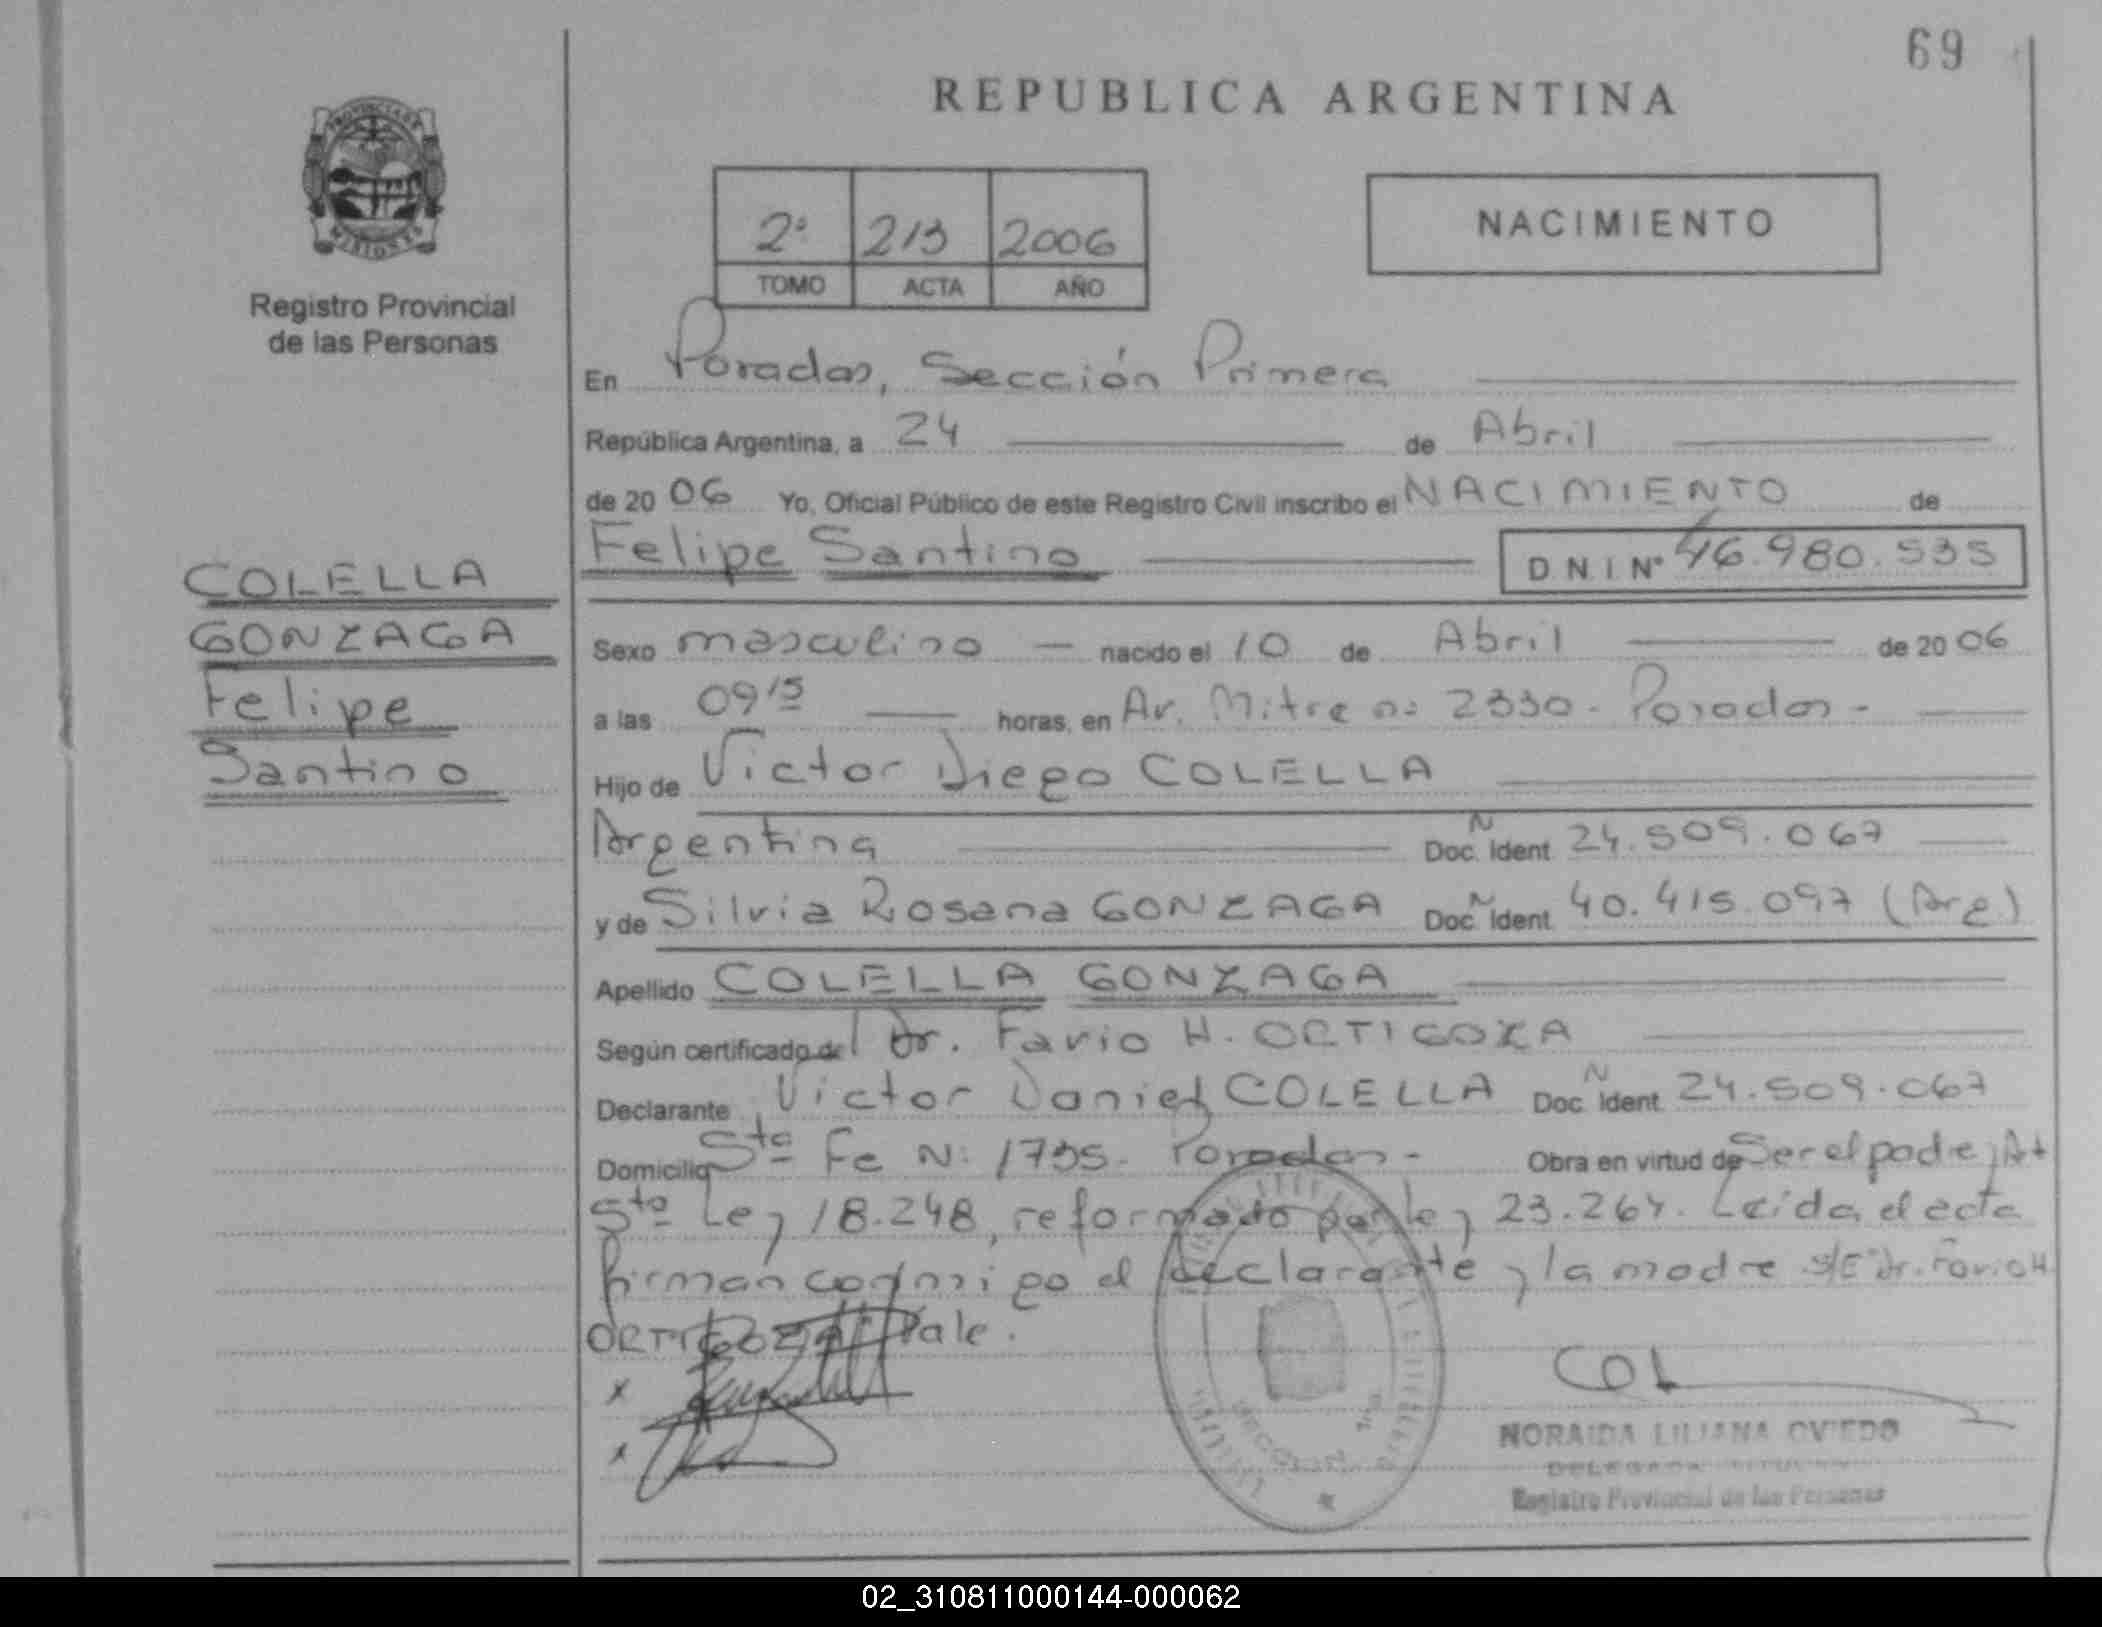 69
REPUBLICA ARGENTINA
PROVINCIA DE
MISIONES
Registro Provincial
de las Personas
2º 213 2006
TOMO ACTA AÑO
NACIMIENTO
En Posadas, Sección Primera
República Argentina, a 24 de Abril
de 20 06 Yo, Oficial Público de este Registro Civil inscribo el NACIMIENTO de
Felipe Santino D.N.I Nº 46.980.535
COLELLA
GONZAGA
Felipe
Santino
Sexo masculino nacido el 10 de Abril de 20 06
a las 09 15 horas, en Av. Mitre nº 2330 - Posadas -
Hijo de Victor Diego COLELLA
Argentina Doc. Ident. N 24.509.067
y de Silvia Rosana GONZAGA Doc. Ident. N 40.415.097 (Arg)
Apellido COLELLA GONZAGA
Según certificado del Dr. Favio H. ORTIGOZA
Declarante Victor Daniel COLELLA Doc. Ident. N 24.509.067
Domicilio Sta Fe N: 1735 - Posadas - Obra en virtud de Ser el padre, Art
5to Ley 18.248, reformado por ley 23.264. Leída el acta
firman conmigo el declarante y la madre S/E Dr. Favio H
ORTIGOZA Vale.
x
x
COL
NORAIDA LILIANA OVIEDO
DELEGADA
Registro Provincial de las Personas
02_310811000144-000062